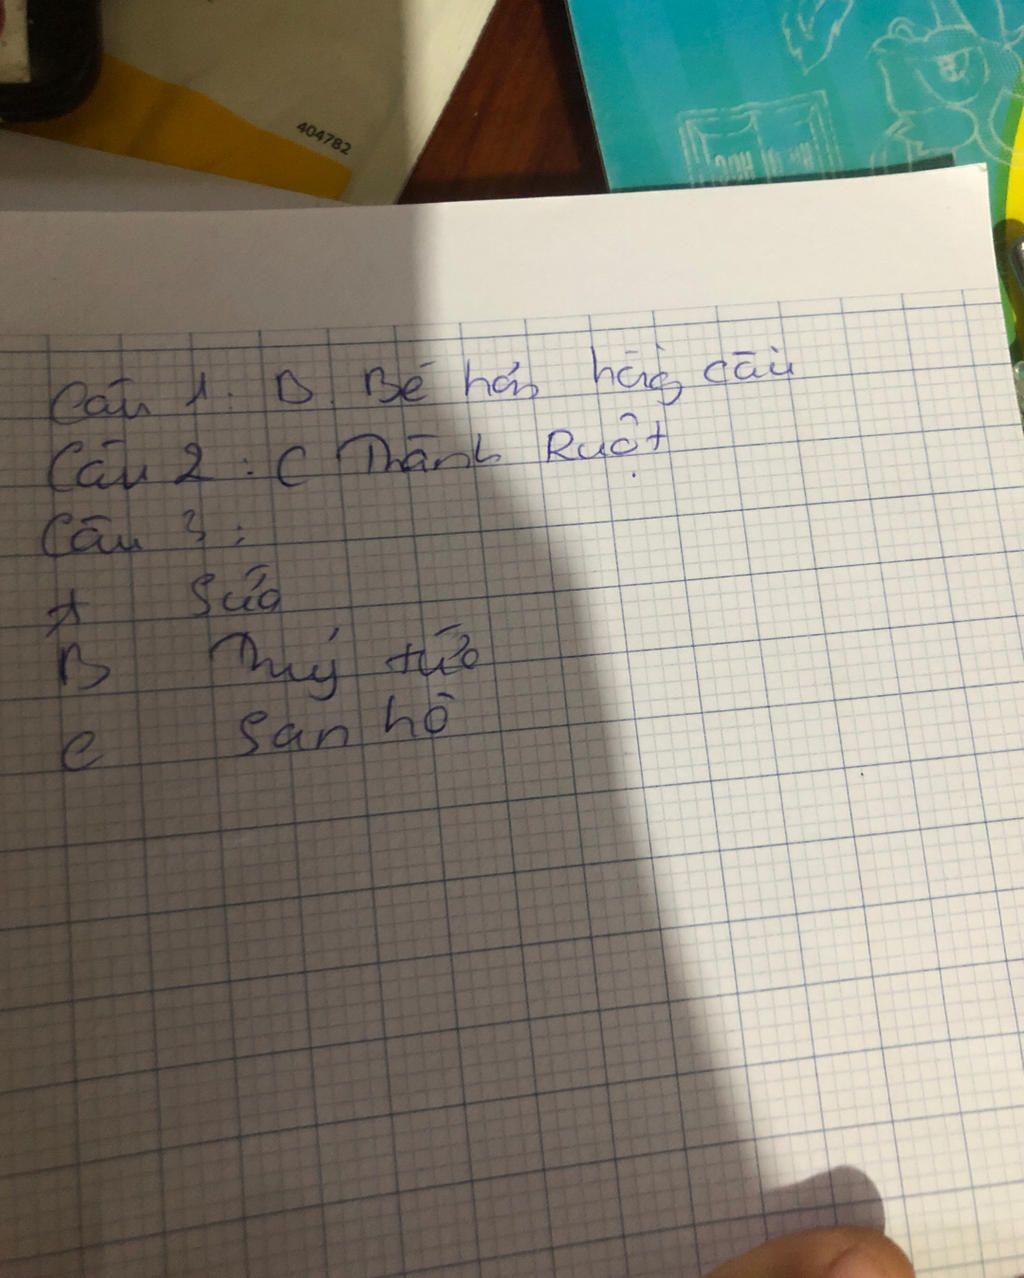 404782
Câu 1: D. Bé hơn hoặc cầu
Câu 2: C Thành Ruột
Câu 3:
A Sứa
B Thuỷ tức
C San hô